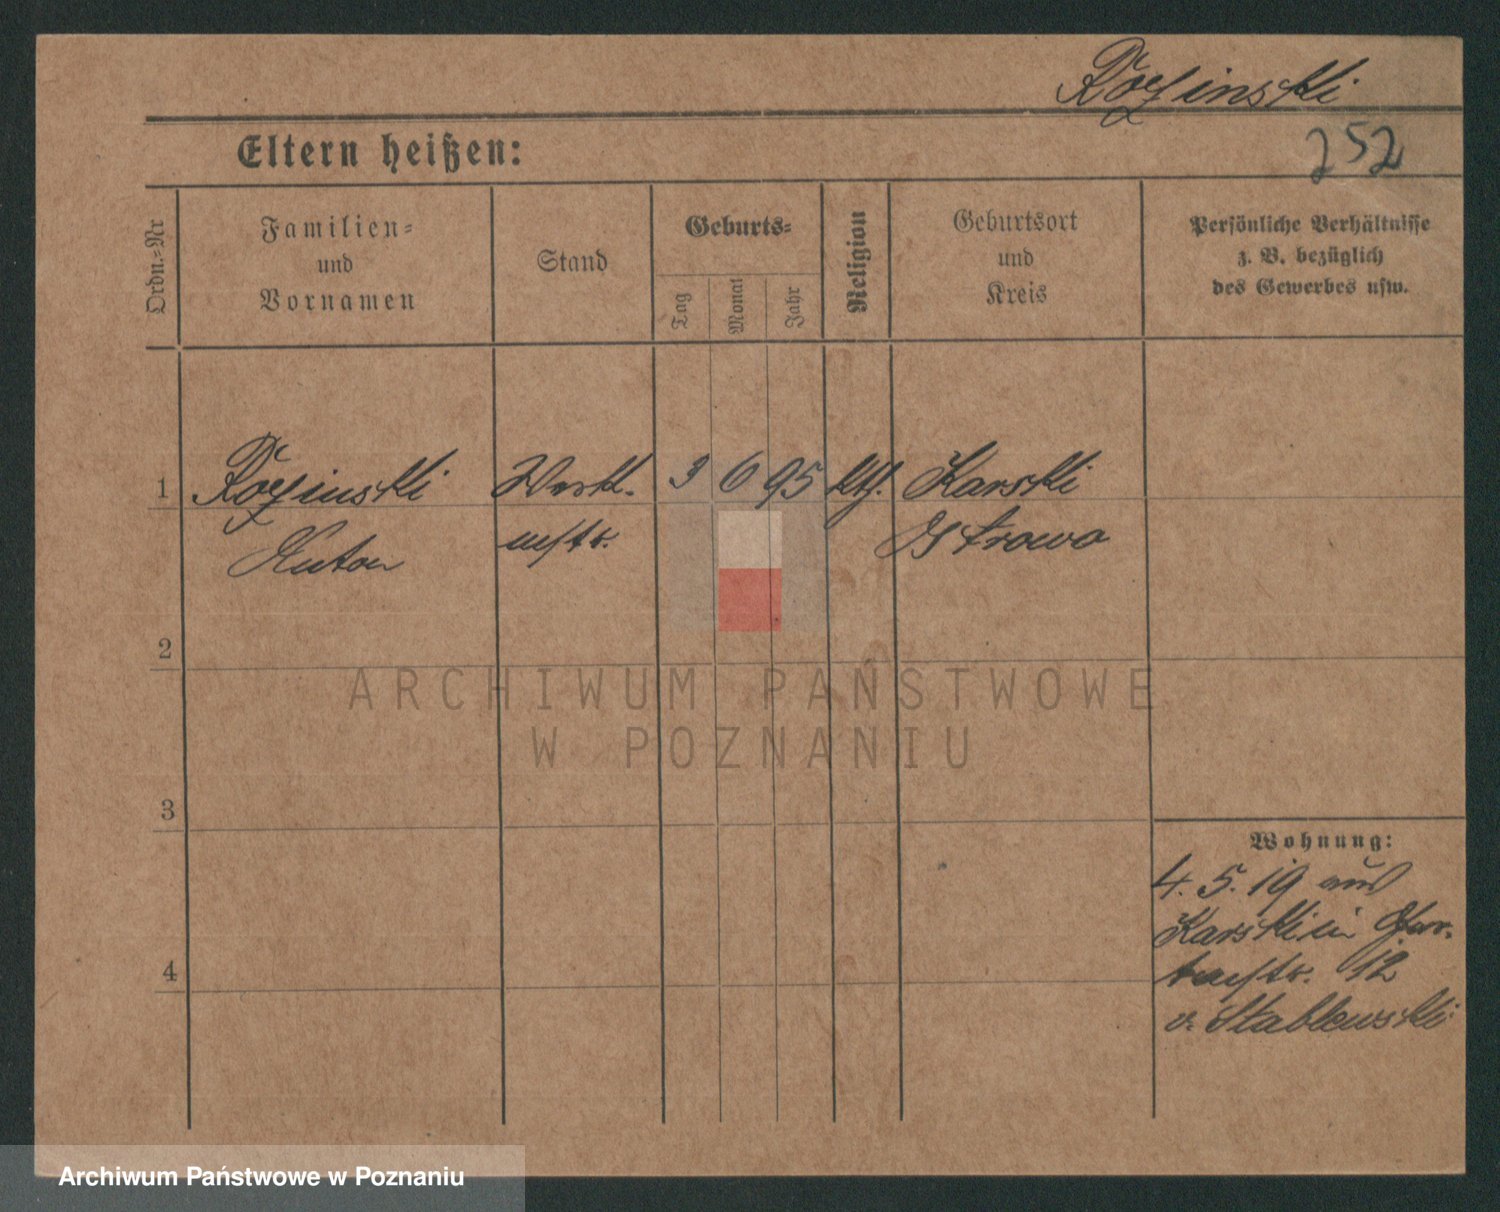 Rozinski
252
Eltern heißen:
Ordn.-Nr
Familien-
und
Vornamen
Stand
Geburts-
Tag
Monat
Jahr
Religion
Geburtsort
und
Kreis
Persönliche Verhältnisse
z. B. bezüglich
des Gewerbes usw.
1 Rozinski Werk- 3 6 95 kth. Karski
Anton mstr. Ostrowo
2
ARCHIWUM PAŃSTWOWE
W POZNANIU
3
Wohnung:
4. 5. 19 aus
Karski in
12
v. Stablewski
4
Archiwum Państwowe w Poznaniu